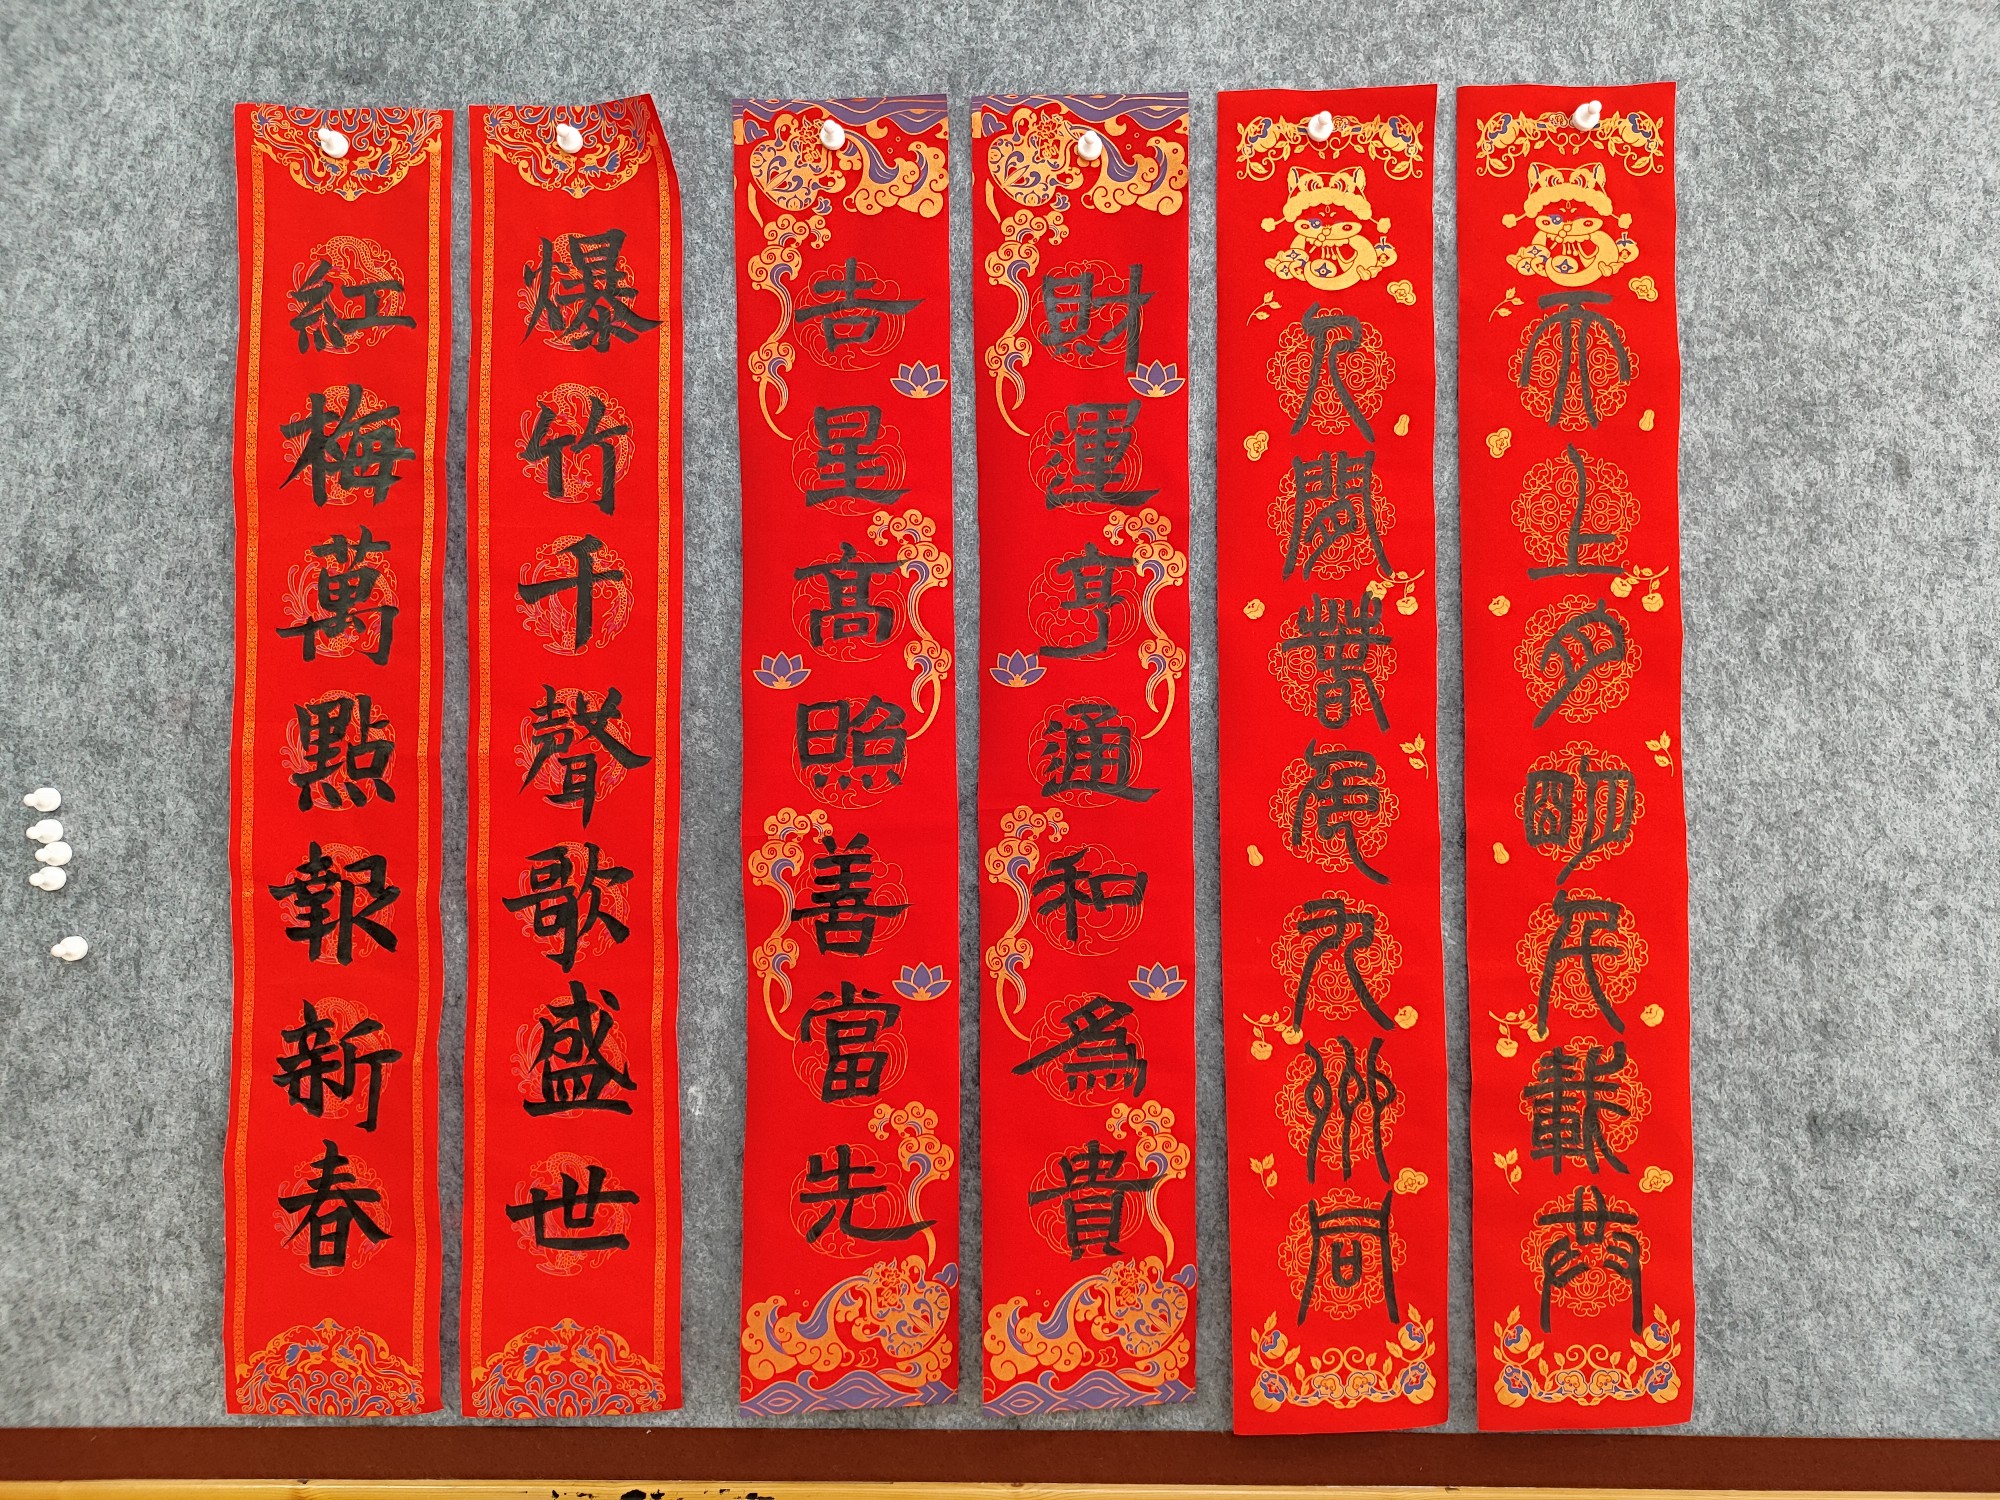 天上月明千載共
人間春色九州同
財運亨通和為貴
吉星高照善當先
爆竹千聲歌盛世
紅梅萬點報新春